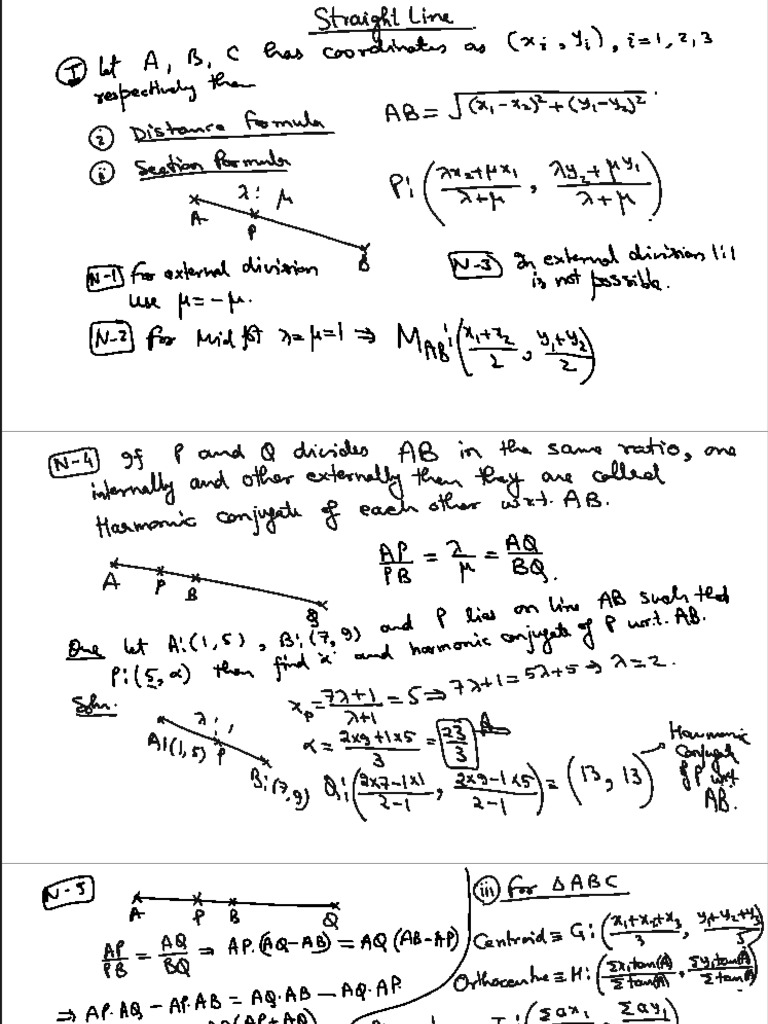 Straight Line
(I) Let A, B, C has coordinates as (xᵢ, yᵢ), i=1,2,3
respectively then
(i) Distance Formula AB = √((x₁-x₂)²+(y₁-y₂)²)
(ii) Section Formula P: ((λx₂+μx₁)/(λ+μ), (λy₂+μy₁)/(λ+μ))
λ : μ
A P B
N-1 For external division
use μ = -μ.
N-3 In external division 1:1
is not possible.
N-2 For Mid pt λ=μ=1 ⇒ M_AB: ((x₁+x₂)/2, (y₁+y₂)/2)
N-4 If P and Q divides AB in the same ratio, one
internally and other externally then they are called
Harmonic conjugate of each other w.r.t. AB.
A P B Q
AP/PB = λ/μ = AQ/BQ.
Que Let A:(1,5), B:(7,9) and P lies on line AB such that
P:(5,α) then find 'α' and harmonic conjugate of P w.r.t. AB.
Soln. x_P = (7λ+1)/(λ+1) = 5 ⇒ 7λ+1 = 5λ+5 ⇒ λ=2.
λ : 1
A:(1,5) P B:(7,9)
α = (2×9+1×5)/3 = 23/3
Q: ((2×7-1×1)/(2-1), (2×9-1×5)/(2-1)) = (13, 13)
Harmonic
Conjugate
of P w.r.t
AB.
N-5 A P B Q
AP/PB = AQ/BQ ⇒ AP.(AQ-AB) = AQ(AB-AP)
⇒ AP.AQ - AP.AB = AQ.AB - AQ.AP.
(AP+AQ)
(iii) For ΔABC
Centroid ≡ G: ((x₁+x₂+x₃)/3, (y₁+y₂+y₃)/3)
Orthocentre ≡ H: (Σx₁tan(A)/Σtan(A), Σy₁tan(A)/Σtan(A))
Σax₁ Σay₁